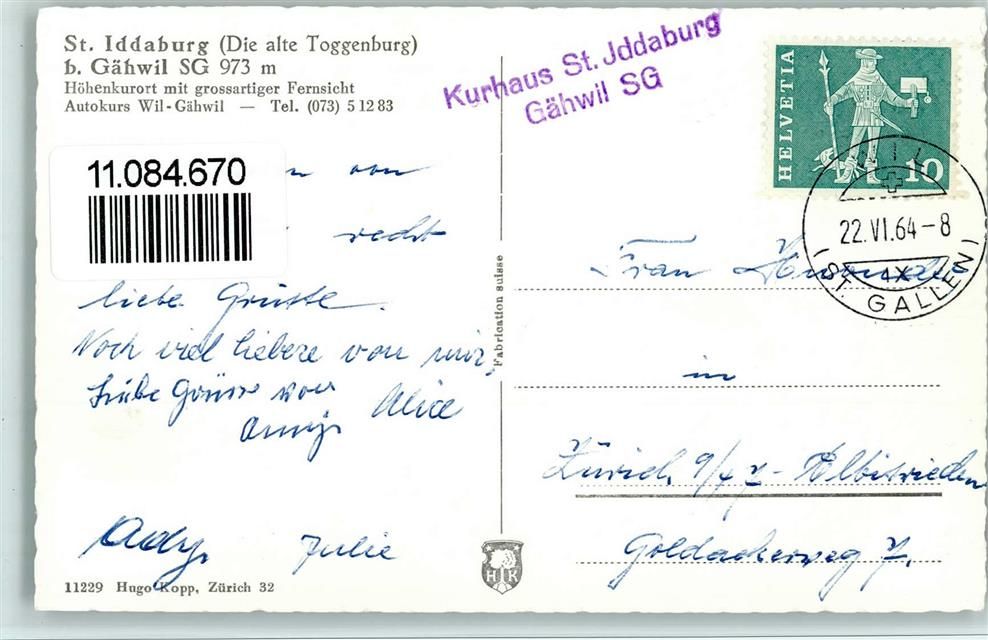 St. Iddaburg (Die alte Toggenburg)
b. Gähwil SG 973 m
Höhenkurort mit grossartiger Fernsicht
Autokurs Wil-Gähwil — Tel. (073) 5 12 83
Kurhaus St. Jddaburg
Gähwil SG
HELVETIA
10
WIL
22.VI.64-8
ST. GALLEN
11.084.670
von
recht
liebe Grüsse.
Noch viel liebere von mir,
Liebe Grüsse von Alice
Ady, Julie
Fabrication suisse
Frau
in
Zürich 9/47 - Albisrieden
Goldackerweg 7.
HK
11229 Hugo Kopp, Zürich 32